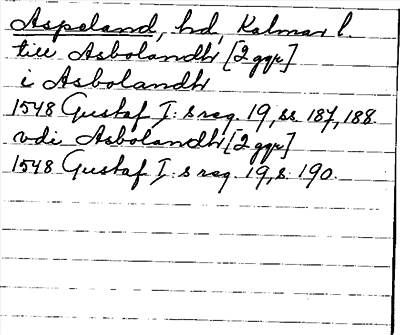 Aspeland, hd, Kalmar l.
till Asbolandh [2 ggr]
i Asbolandh
1548 Gustaf I:s reg. 19, ss. 187, 188.
vdi Asbolandh [2 ggr]
1548 Gustaf I:s reg. 19, s. 190.